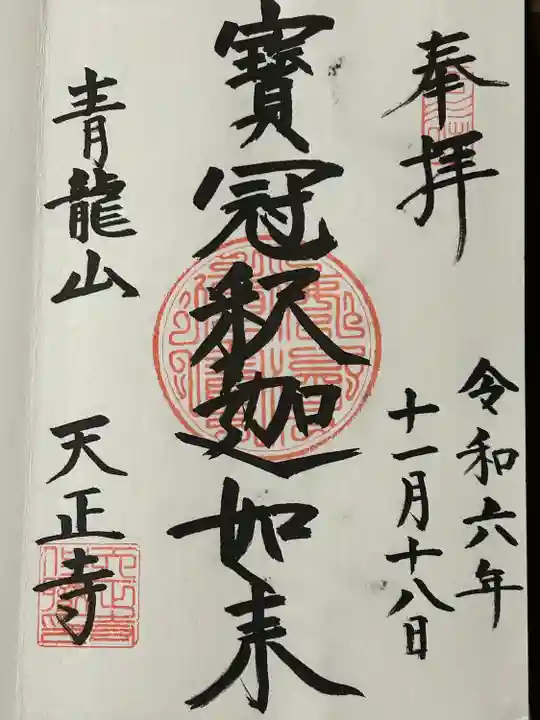 奉拝
令和六年
十一月十八日
寳冠釈迦如来
青龍山 天正寺